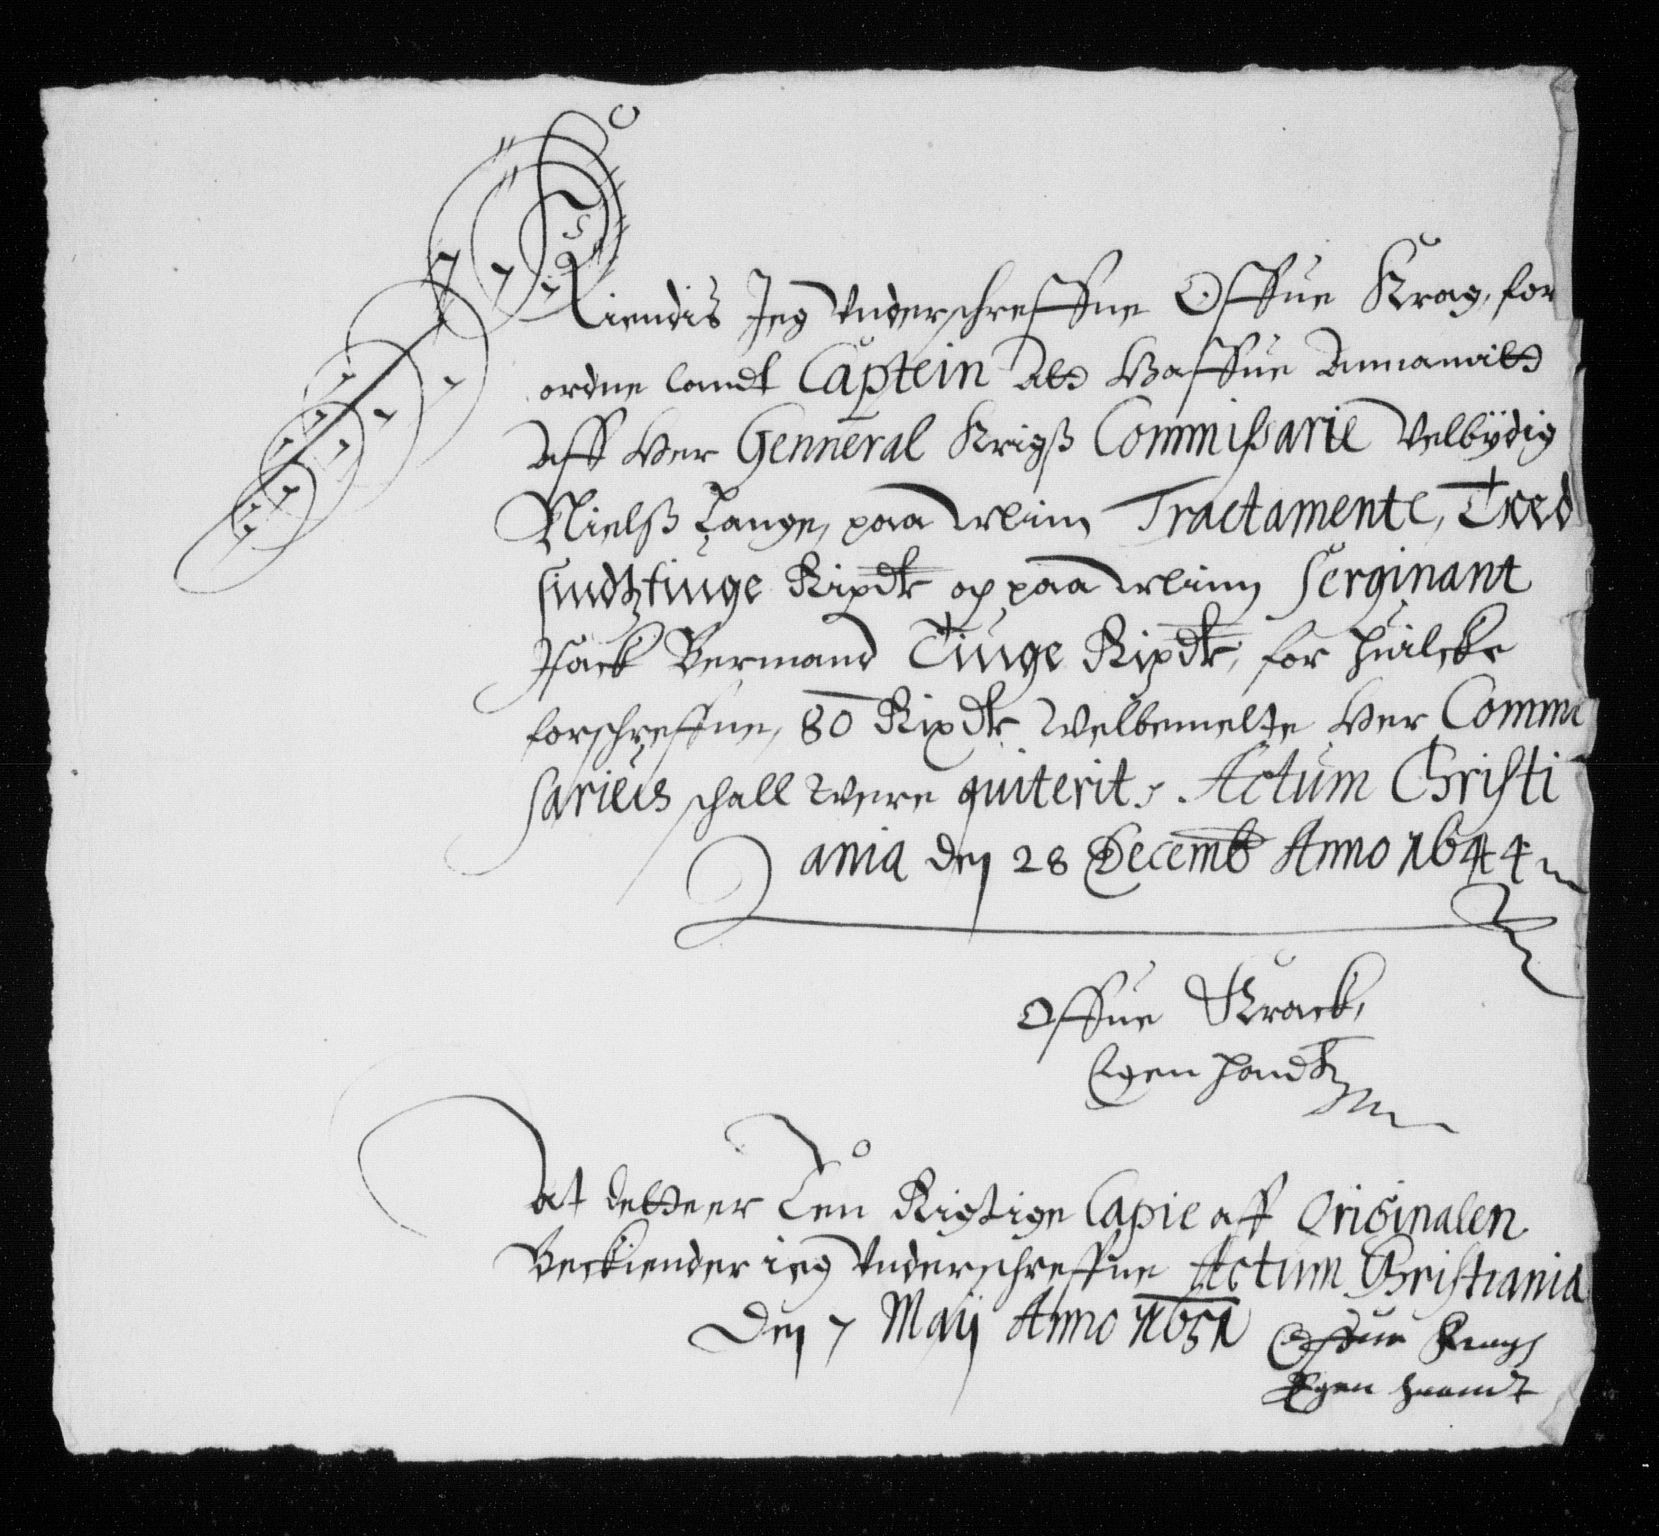 Kiendis Jeg Vnderschreffne Offue Krag, for
ordne landt Captein Att Haffue Annamitt
Aff Her Genneral Krigß Commißarie Velbÿdig
Nielß Lange, paa Mÿnn Tractamente, Tred
sindtztiuge Rixdlr och paa Minn Serginant
Jsack Bermand Tiuge Rixdlr, for huilcke
forschreffne, 80 Rixdlr Velbemelte Her Commi
sarius schall Were quiterit. Actum Christi
ania den 28 Decemb Anno 1644
Offue Krack,
Egen handt
At dette er Een Rigtige Capie aff Originalen
Beckiender ieg Vnderschreffne Actum Christiania
Den 7 Maij Anno 1651 Offue Kragh
Egen haandt